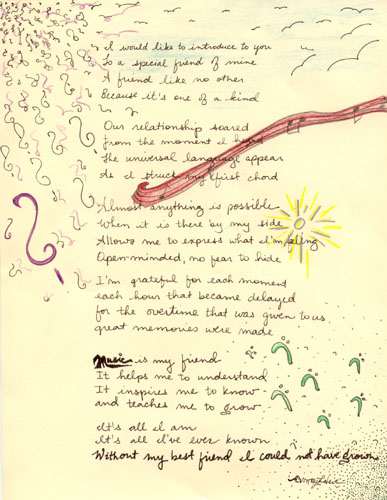 I would like to introduce to you
To a special friend of mine
A friend like no other
Because it's one of a kind
Our relationship soared
From the moment I heard
The universal language appear
As I struck my first chord
Almost anything is possible
When it is there by my side
Allows me to express what I'm feeling
Open-minded, no fear to hide
I'm grateful for each moment
each hour that became delayed
for the overtime that was given to us
great memories were made
Music is my friend
It helps me to understand
It inspires me to know
and teaches me to grow
It's all I am
It's all I've ever known
Without my best friend I could not have grown